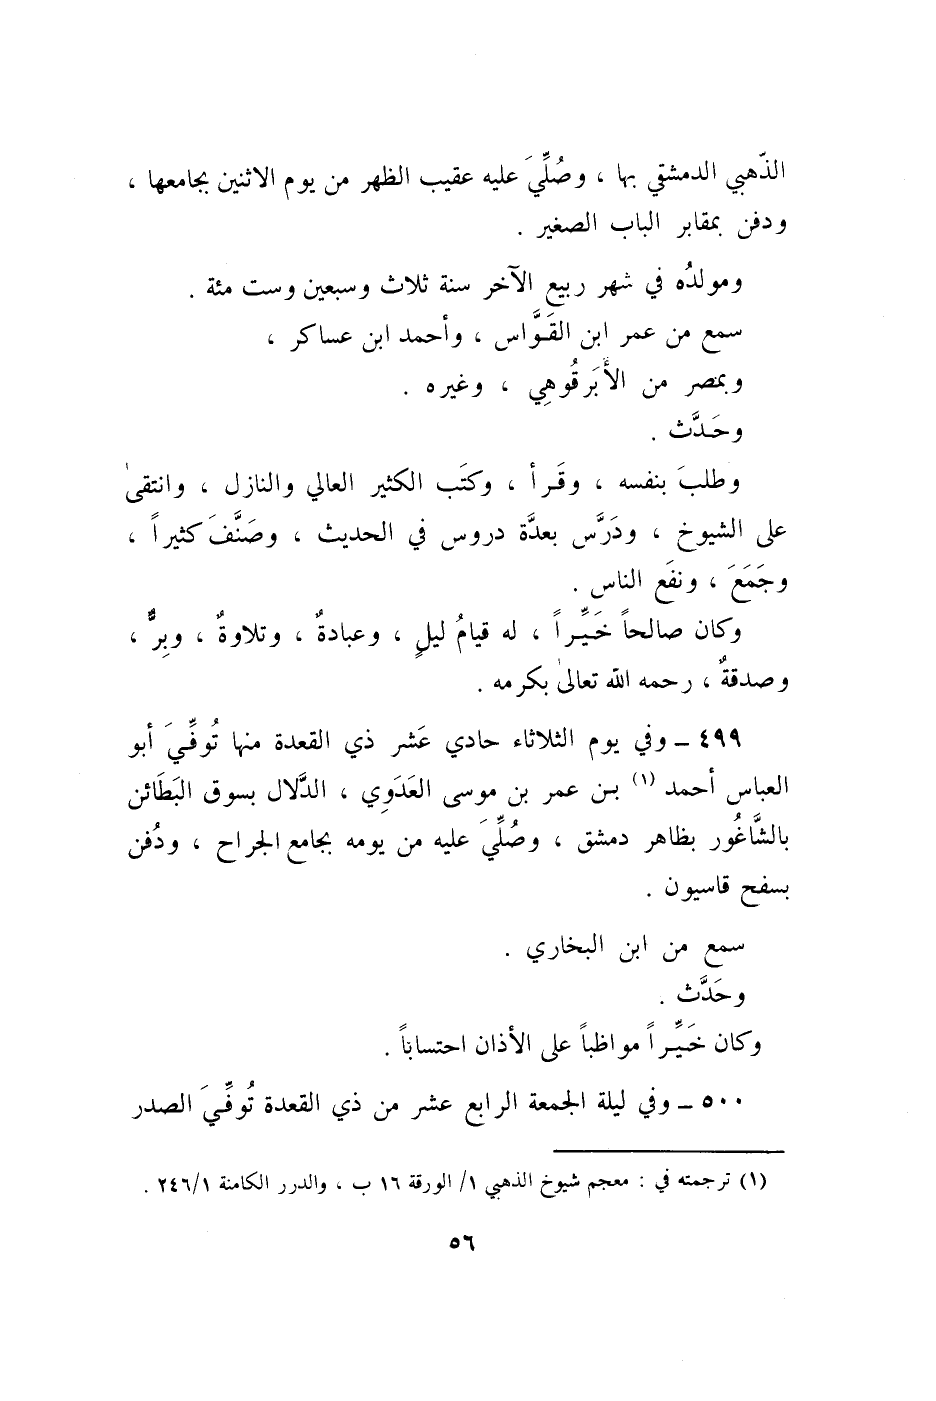 الذّهبي الدمشقي بها ، وصُلِّيَ عليه عقيب الظهر من يوم الاثنين بجامعها ،
ودفن بمقابر الباب الصغير .
ومولدُه في شهر ربيع الآخر سنة ثلاث وسبعين وست مئة .
سمع من عمر ابن القَوَّاس ، وأحمد ابن عساكر ،
وبمصر من الأَبَرقُوهِي ، وغيره .
وحَدَّث .
وطلبَ بنفسه ، وقَرأ ، وكتَب الكثير العالي والنازل ، وانتقىٰ
على الشيوخ ، ودَرَّس بعدَّة دروس في الحديث ، وصَنَّفَ كثيراً ،
وجَمَعَ ، ونفَع الناس .
وكان صالحاً خَيِّراً ، له قيامُ ليلٍ ، وعبادةٌ ، وتلاوةٌ ، وبِرٌّ ،
وصدقةٌ ، رحمه الله تعالىٰ بكرمه .
٤٩٩ - وفي يوم الثلاثاء حادي عَشر ذي القعدة منها تُوفِّيَ أبو
العباس أحمد (١) بن عمر بن موسى العَدَوِي ، الدَّلال بسوق البَطَائن
بالشَّاغُور بظاهر دمشق ، وصُلِّيَ عليه من يومه بجامع الجراح ، ودُفن
بسفح قاسيون .
سمع من ابن البخاري .
وحَدَّث .
وكان خَيِّراً مواظباً على الأذان احتساباً .
٥٠٠ - وفي ليلة الجمعة الرابع عشر من ذي القعدة تُوفِّيَ الصدر
(١) ترجمته في : معجم شيوخ الذهبي ١/ الورقة ١٦ ب ، والدرر الكامنة ٢٤٦/١ .
٥٦